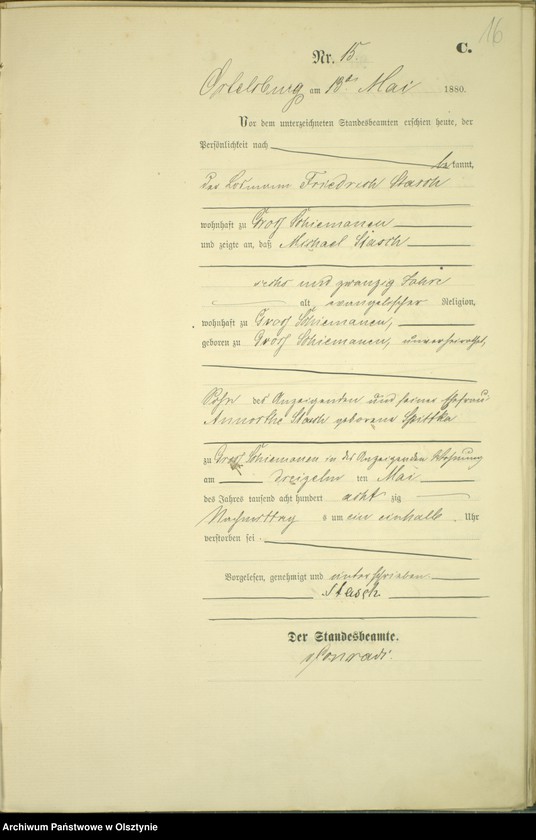 16
C.
Nr. 15.
Ortelsburg am 18ten Mai 1880.
Vor dem unterzeichneten Standesbeamten erschien heute, der
Persönlichkeit nach
be kannt,
der Losmann Friedrich Stasch
wohnhaft zu Groß Schiemanen
und zeigte an, daß Michael Stasch
sechs und zwanzig Jahre
alt evangelischer Religion,
wohnhaft zu Groß Schiemanen,
geboren zu Groß Schiemanen, unverheirathet,
Sohn des Anzeigenden und seiner Ehefrau
Annorthe Stasch geborene Spittka
zu Groß Schiemanen in des Anzeigenden Wohnung
am dreizehn ten Mai
des Jahres tausend acht hundert acht zig
Nachmittag s um ein einhalb Uhr
verstorben sei.
Vorgelesen, genehmigt und unterschrieben
Stasch
Der Standesbeamte.
Conradi.
Archiwum Państwowe w Olsztynie